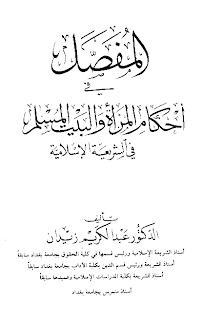 المفصل
في
أحكام المرأة والبيت المسلم
في الشريعة الإسلامية
تأليف
الدكتور عبد الكريم زيدان
أستاذ الشريعة الإسلامية ورئيس قسمها في كلية الحقوق بجامعة بغداد سابقاً
أستاذ الشريعة ورئيس قسم الدين بكلية الآداب بجامعة بغداد سابقاً
أستاذ الشريعة بكلية الدراسات الإسلامية وعميدها سابقاً
أستاذ متمرس بجامعة بغداد